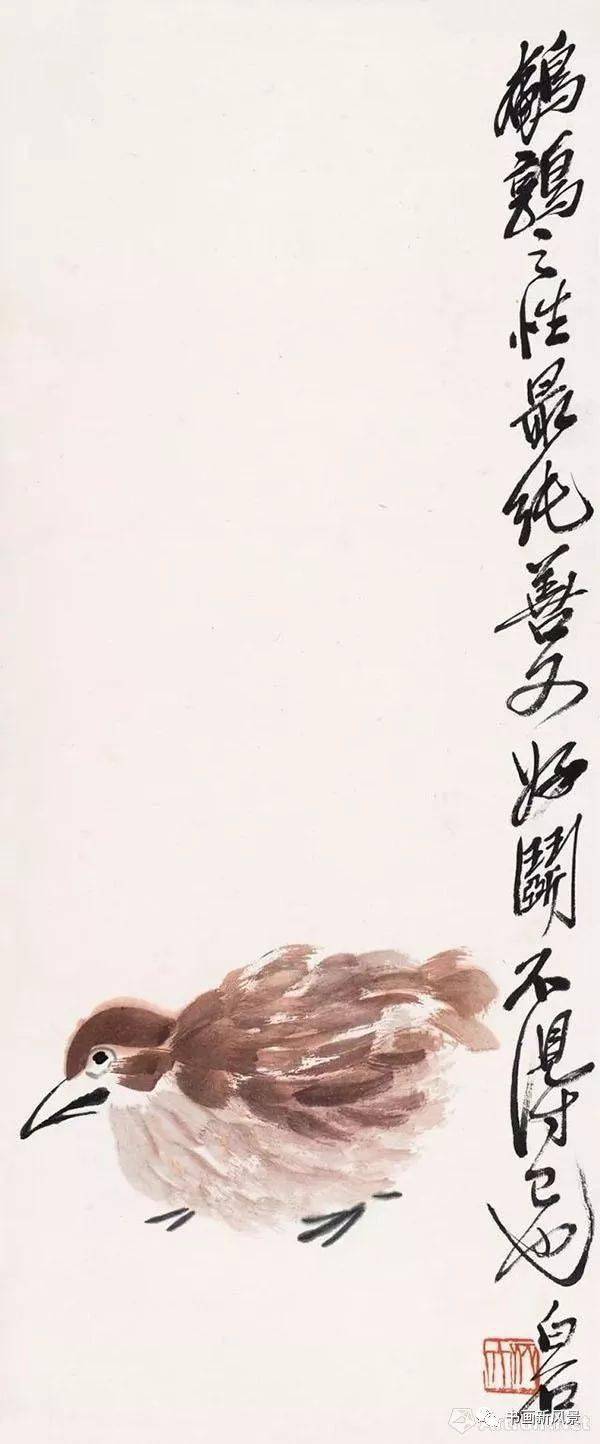 鵪鶉之性最純善又好鬭不得已也 白石
书画新风景